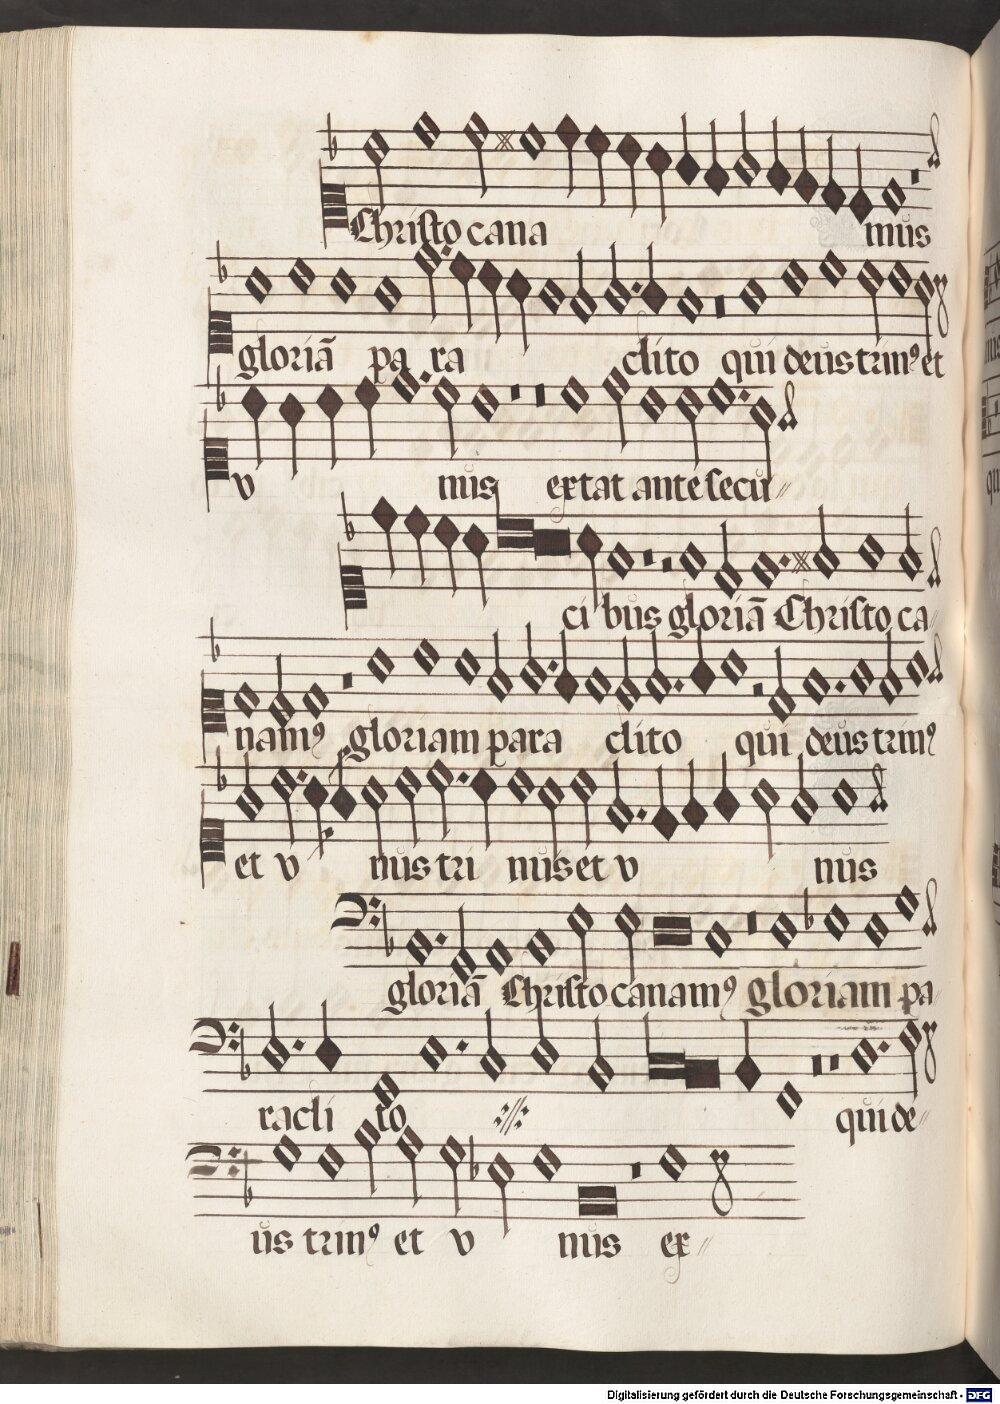 Christo cana mus
gloriā pa ra clito qui deus trinꝰ et
v nus extat ante secu〃
ci bus gloriā Christo ca〃
namꝰ gloriam para clito qui deus trinꝰ
et v nus tri nus et v nus
gloriā Christo canamꝰ gloriam pa〃
racli to qui de〃
us trinꝰ et v nus ex〃
Digitalisierung gefördert durch die Deutsche Forschungsgemeinschaft - DFG